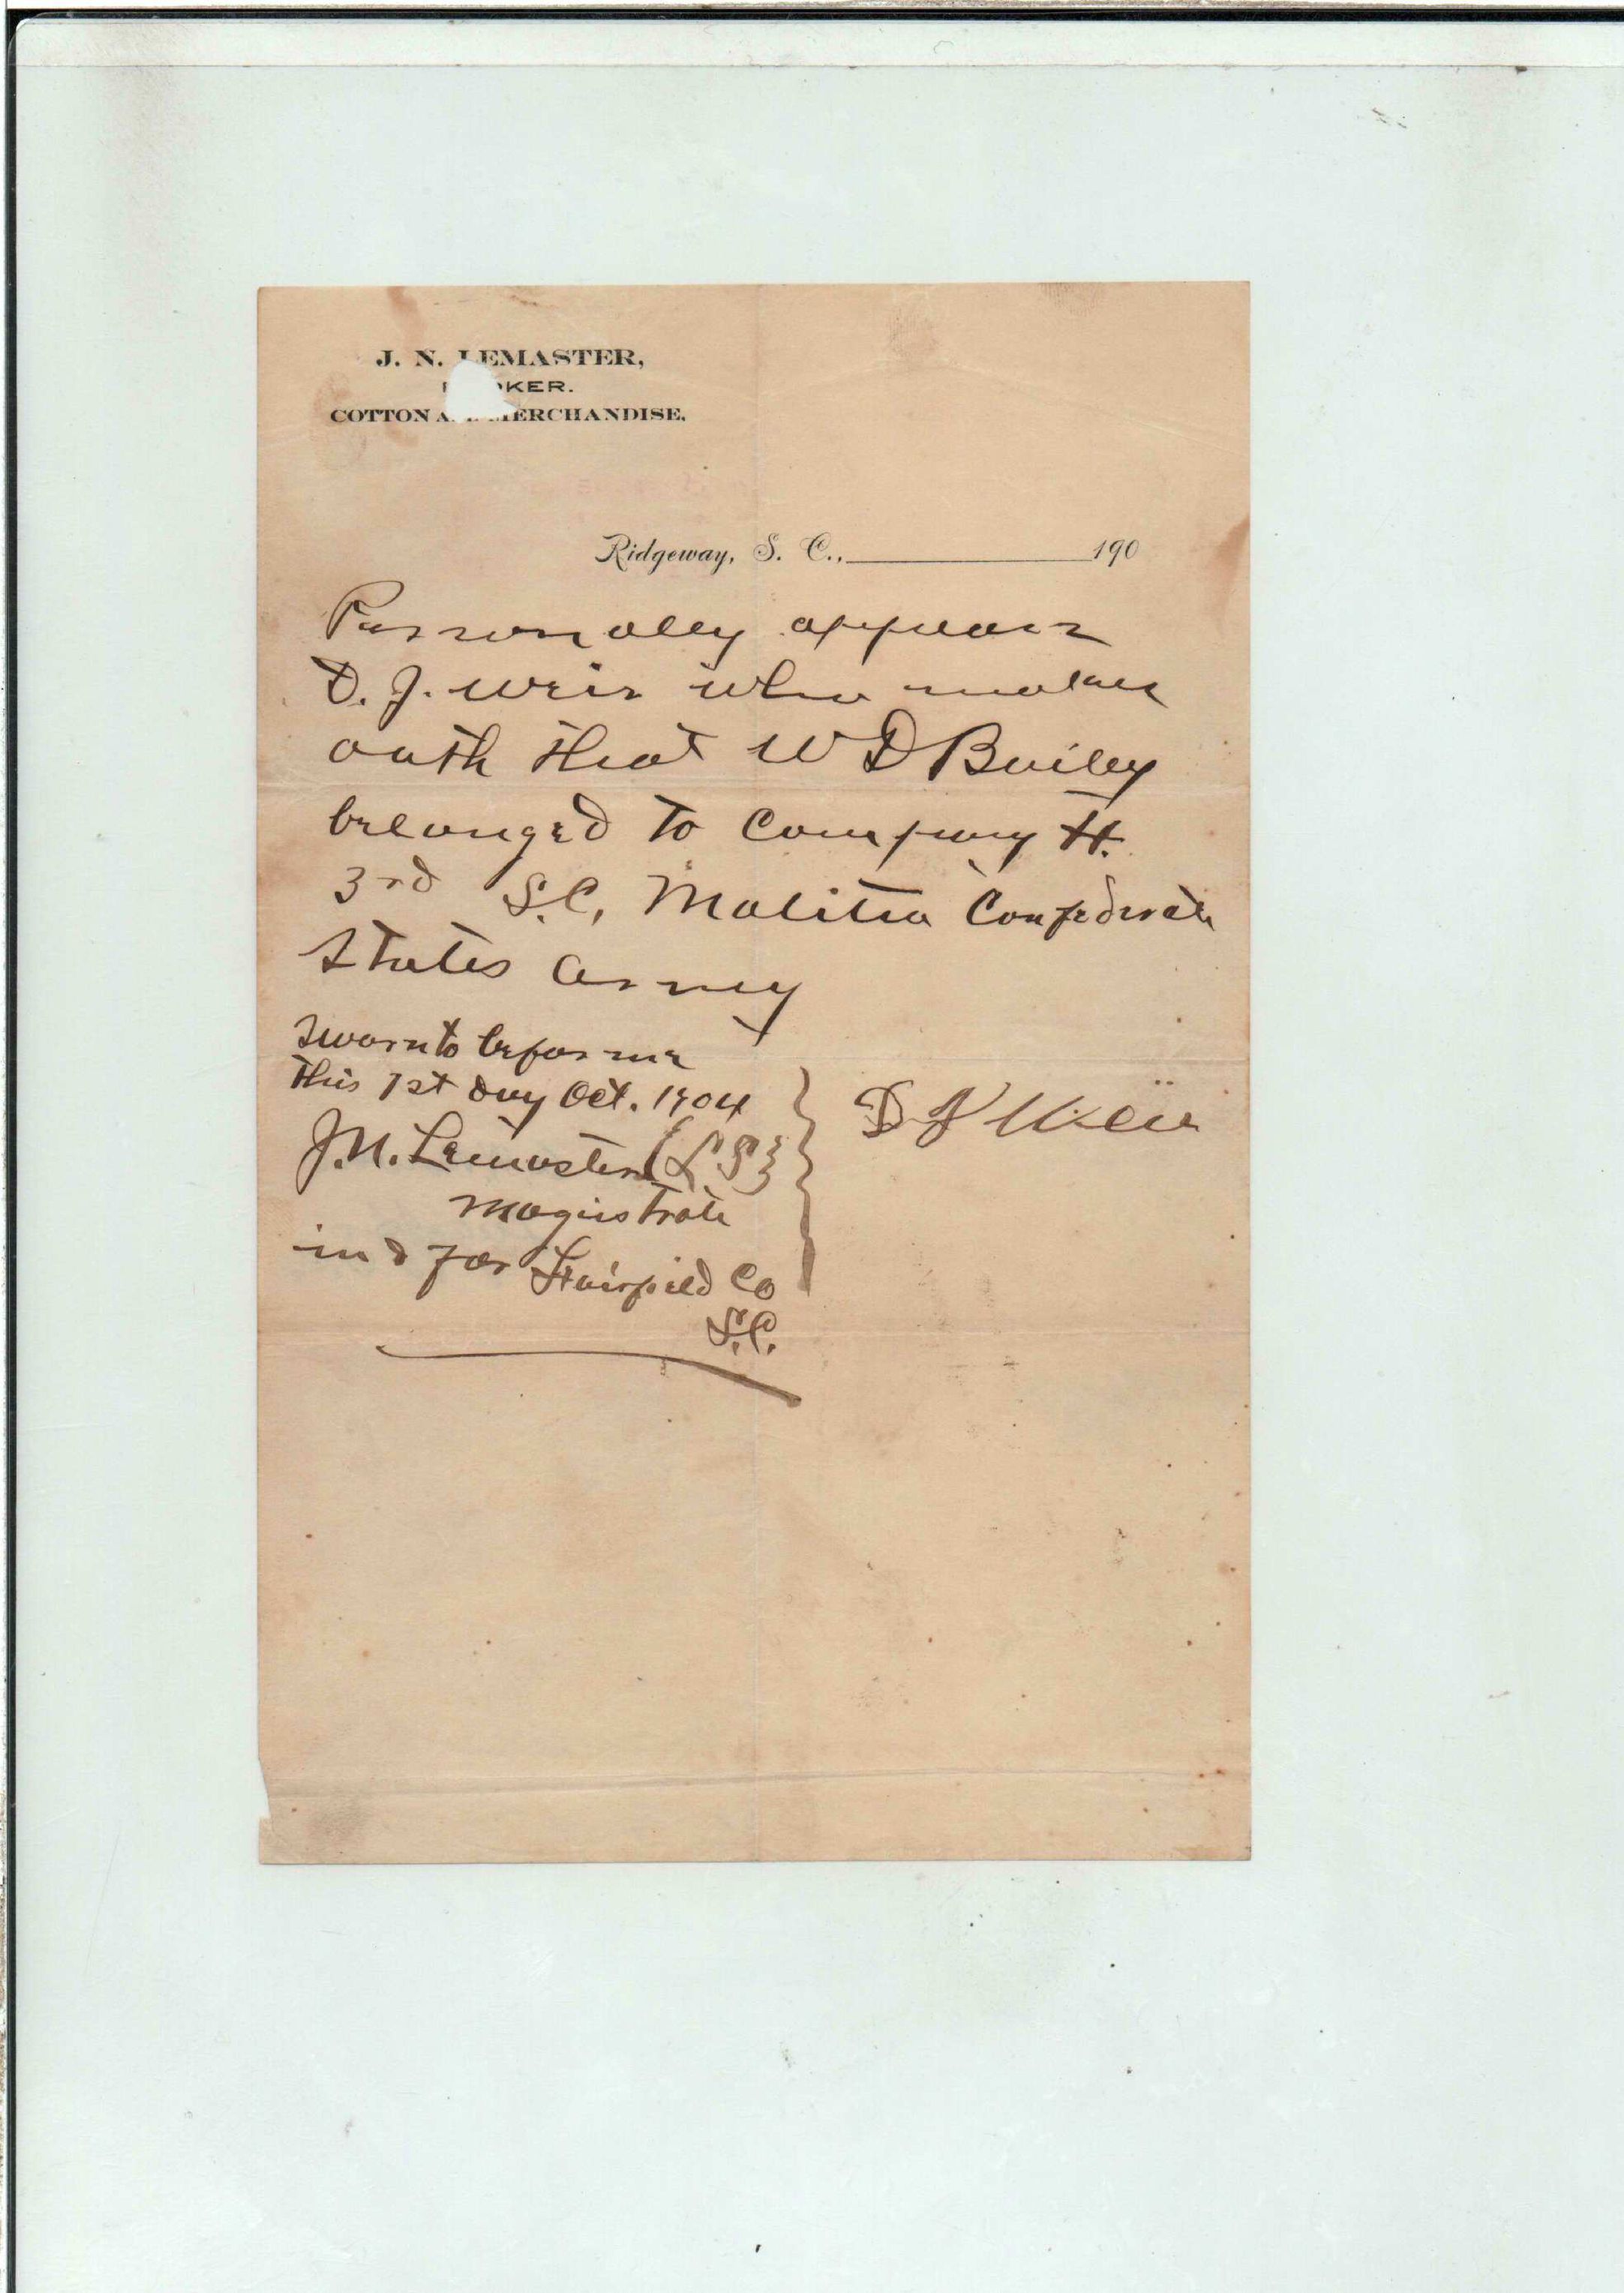 J. N. LEMASTER,
BROKER.
COTTON AND MERCHANDISE.
Ridgeway, S. C., 190
Personally appears
D. J. Weir who makes
oath that W D Bailey
belonged to Company H.
3rd S.C. Malitia Confederate
States Army
Sworn to before me
this 1st day Oct. 1904
J. N. Lemaster {L.S}
Magistrate
in & for Fairfield Co
S.C.
D J Weir